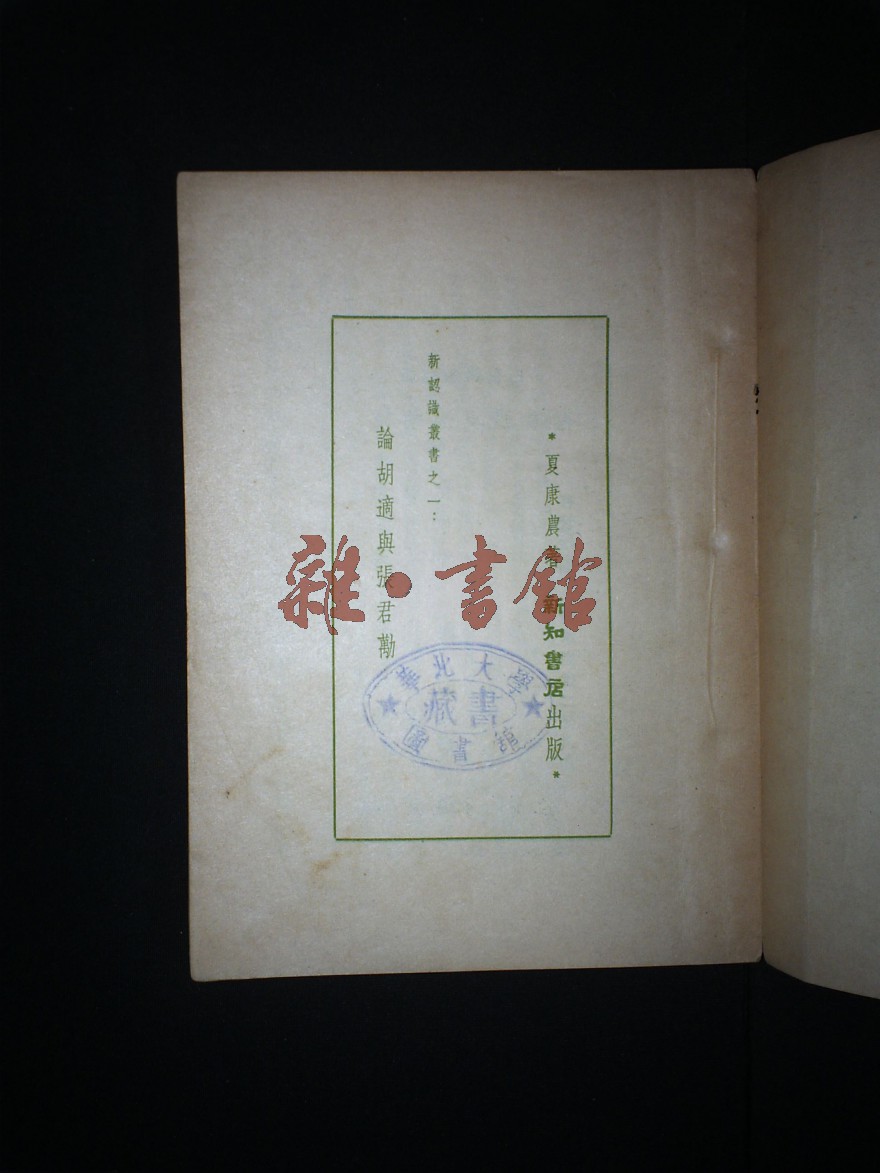 *夏康農著 新知書店出版*
新認識叢書之一：
論胡適與張君勱
華北大學
藏書
圖書館
雜·書館